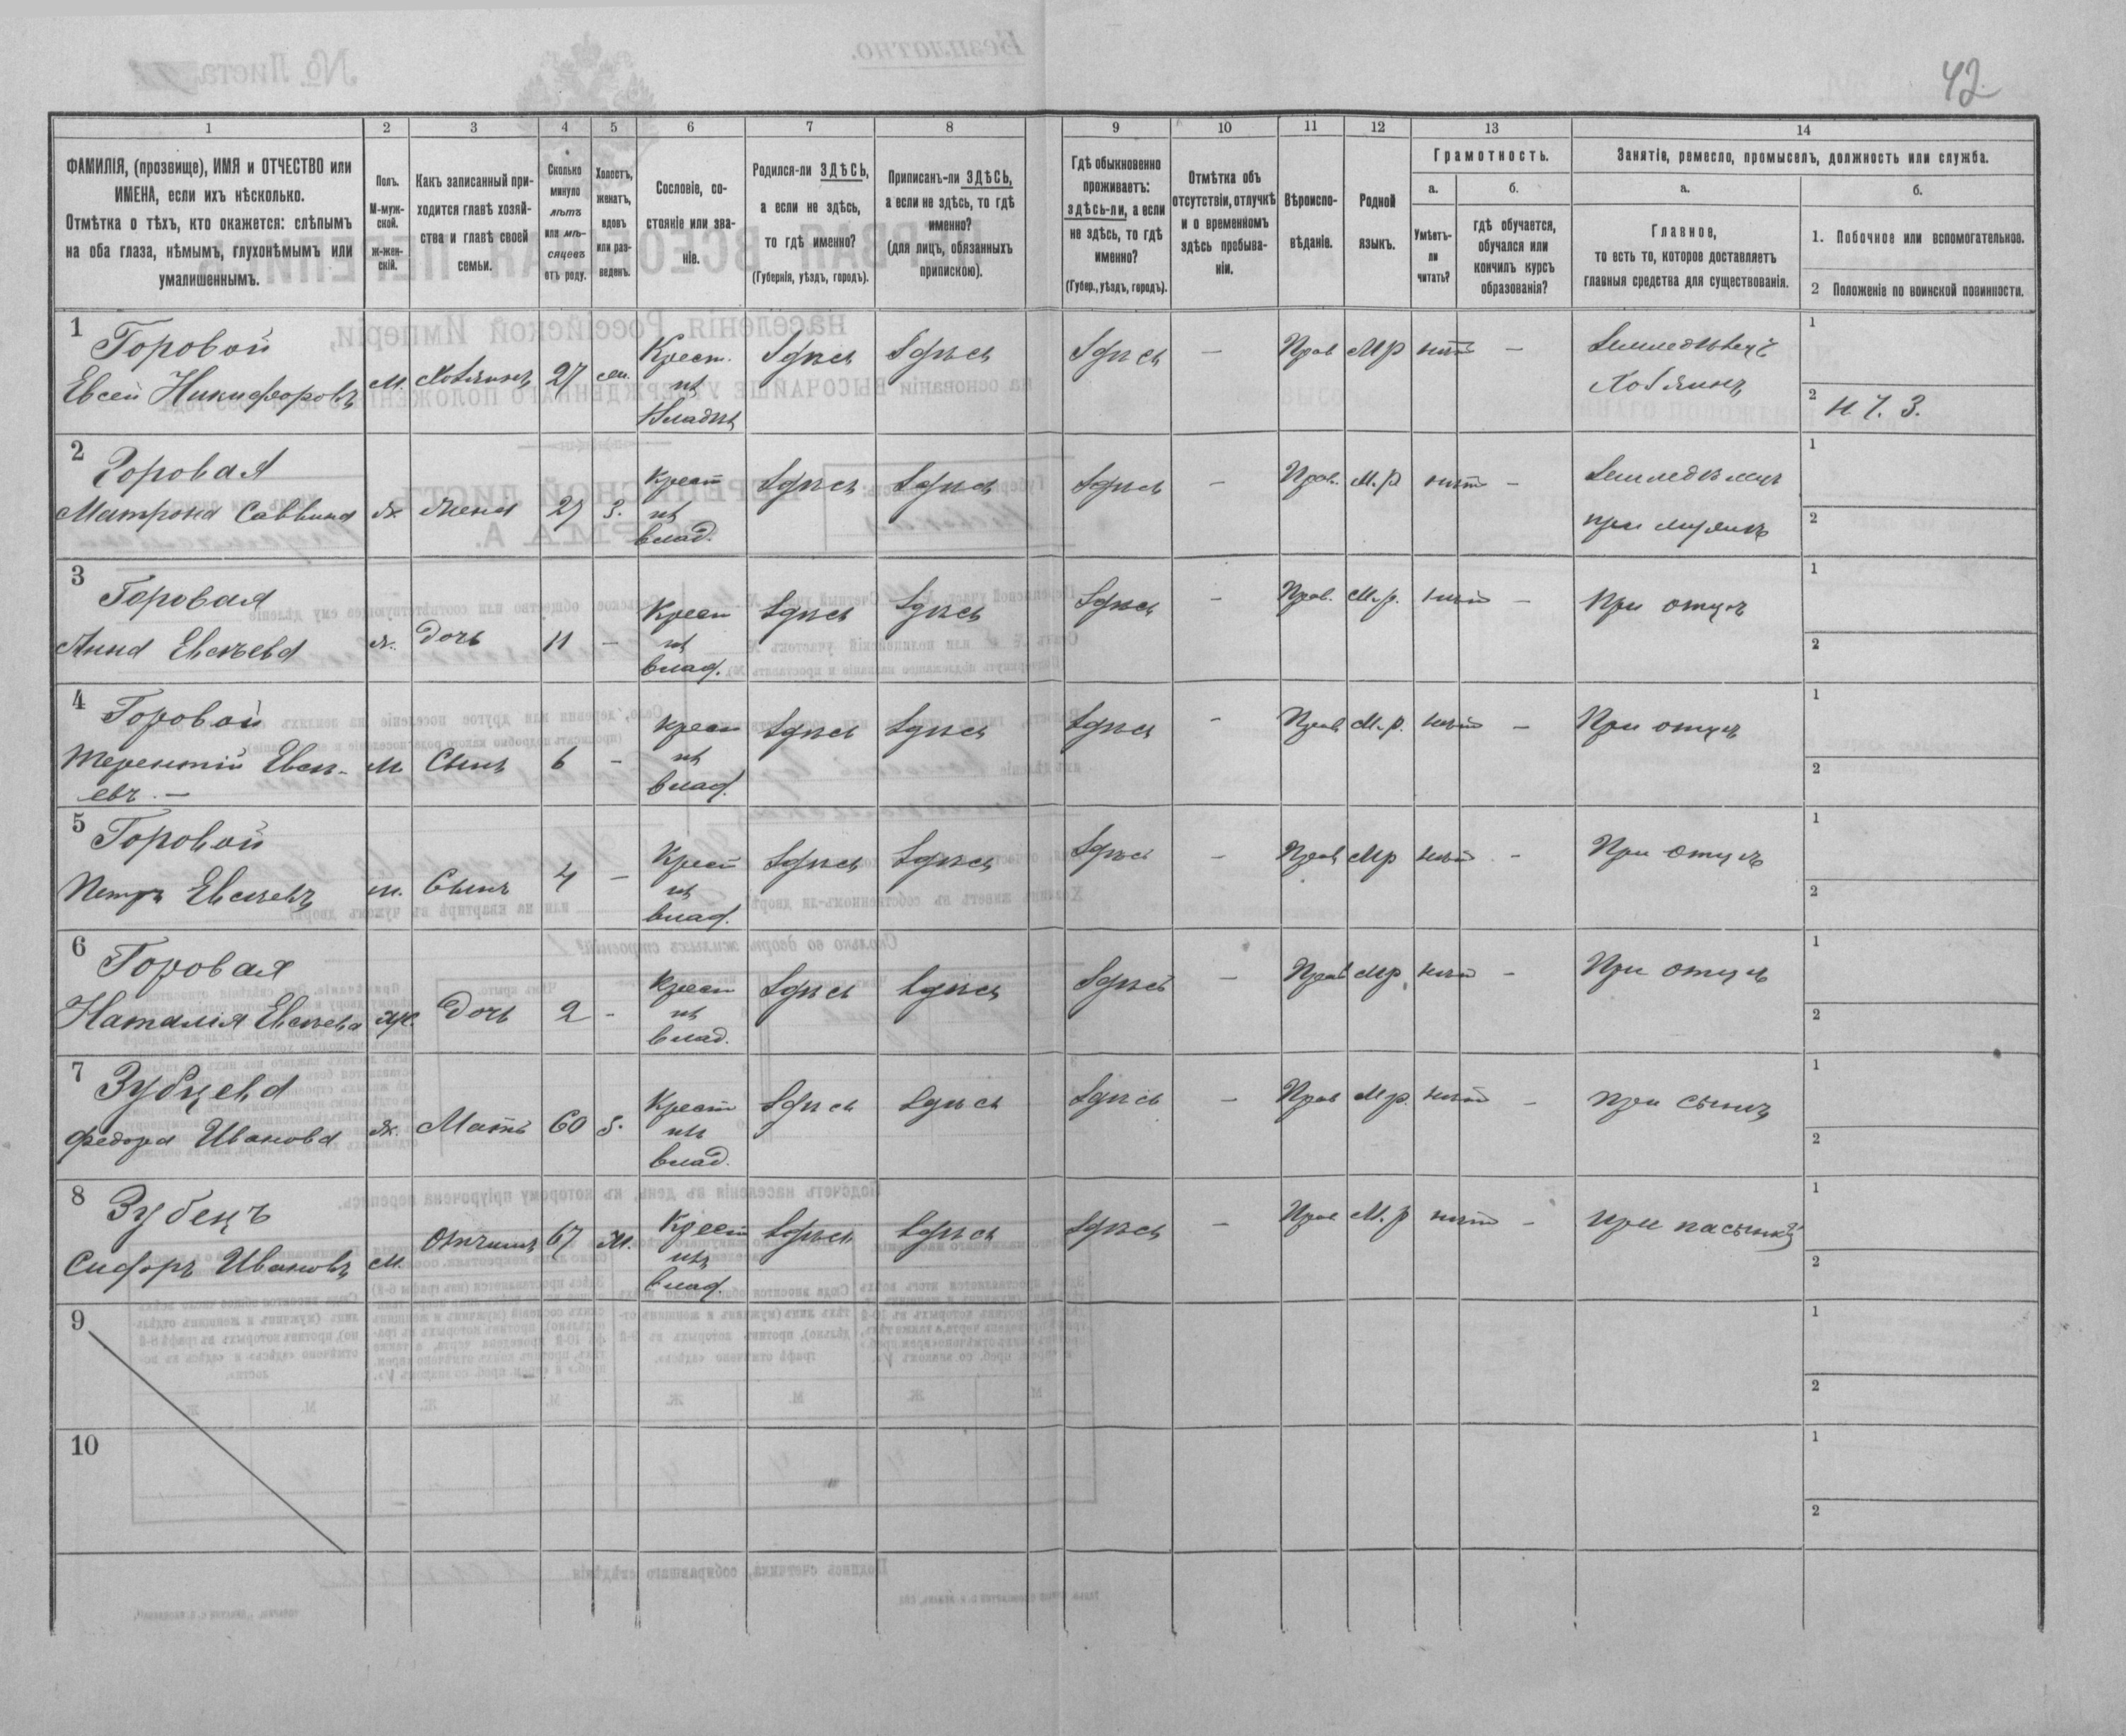 42
1 2 3 4 5 6 7 8 9 10 11 12 13 14
ФАМИЛІЯ, (прозвище), ИМЯ и ОТЧЕСТВО или
ИМЕНА, если ихъ нѣсколько.
Отмѣтка о тѣхъ, кто окажется: слѣпымъ
на оба глаза, нѣмымъ, глухонѣмымъ или
умалишеннымъ.
Полъ.
М-муж-
ской.
ж-жен-
скій.
Какъ записанный при-
ходится главѣ хозяй-
ства и главѣ своей
семьи.
Сколько
минуло
лѣтъ
или мѣ-
сяцевъ
отъ роду.
Холостъ,
женатъ,
вдовъ
или раз-
веденъ.
Сословіе, со-
стояніе или зва-
ніе.
Родился-ли ЗДѢСЬ,
а если не здѣсь,
то гдѣ именно?
(Губернія, уѣздъ, городъ).
Приписанъ-ли ЗДѢСЬ,
а если не здѣсь, то гдѣ
именно?
(для лицъ, обязанныхъ
припискою).
Гдѣ обыкновенно
проживаетъ:
здѣсь-ли, а если
не здѣсь, то гдѣ
именно?
(Губер., уѣздъ, городъ).
Отмѣтка объ
отсутствіи, отлучкѣ
и о временномъ
здѣсь пребыва-
ніи.
Вѣроиспо-
вѣданіе.
Родной
языкъ.
Грамотность.
а.
Умѣетъ-
ли
читать?
б.
гдѣ обучается,
обучался или
кончилъ курсъ
образованія?
Занятіе, ремесло, промыселъ, должность или служба.
а.
Главное,
то есть то, которое доставляетъ
главныя средства для существованія.
б.
1. Побочное или вспомогательное.
2 Положеніе по воинской повинности.
1 Горовой
Евсей Никифоровъ М. Хозяинъ 27 Крест.
изъ
владѣ Здѣсь Здѣсь Здѣсь — Прав М.р нѣт —
Хозяинъ
1
2 Н Ч. З.
2 Горовая
Матрона Саввина Ж. Жена 27 З. Крест
изъ
влад. Здѣсь Здѣсь Здѣсь — Прав. М.р нѣт —
при мужѣ
1
2
3 Горовая
Анна Евсѣева Ж. Дочь 11 — Крест
изъ
влад. Здѣсь Здѣсь Здѣсь — Прав. М.р. нѣт — При отцѣ
1
2
4 Горовой
Терентій Евсѣ-
евъ. — М Сынъ 6 — Крест
изъ
влад. Здѣсь Здѣсь Здѣсь — Прав М.р. нѣт — При отцѣ
1
2
5 Горовой
Петръ Евсѣевъ М. Сынъ 4 — Крест
изъ
влад. Здѣсь Здѣсь Здѣсь — Прав М.р нѣт — При отцѣ
1
2
6 Горовая
Наталія Евсѣева Ж. Дочь 2 — Крест
изъ
влад. Здѣсь Здѣсь Здѣсь — Прав М.р. нѣт — При отцѣ
1
2
7 Зубцева
Федора Иванова Ж. Мать 60 З. Крест
изъ
влад. Здѣсь Здѣсь Здѣсь — Прав М.р. нѣт — При сынѣ
1
2
8 Зубецъ
Сидоръ Ивановъ М. Отчимъ 67 Крест
изъ
влад. Здѣсь Здѣсь Здѣсь — Прав М.р нѣт — При пасынкѣ
1
2
9
1
2
10
1
2